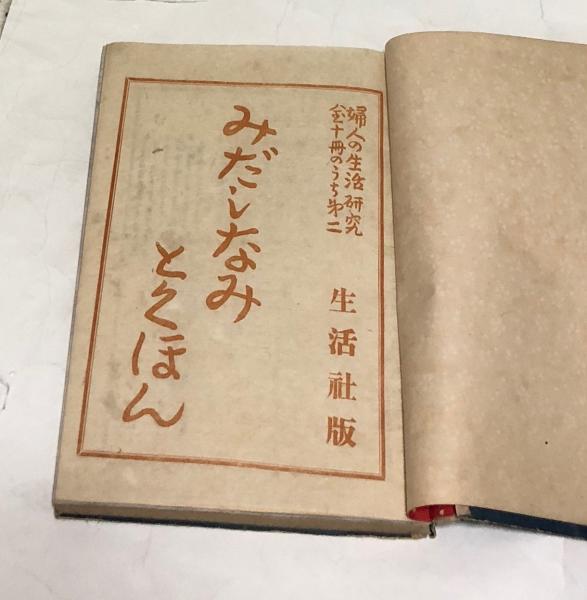 婦人の生活研究
全十冊のうち第二
生活社版
みだしなみ
とくほん